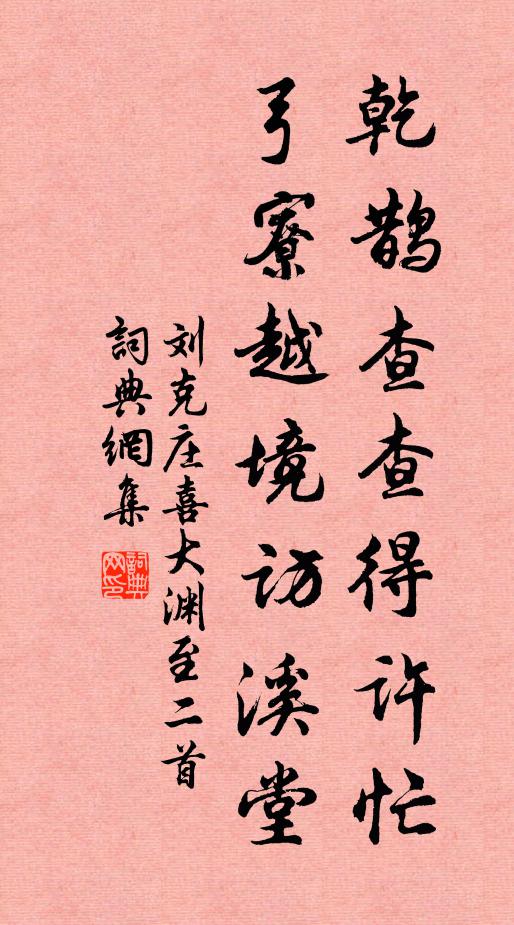 乾鹊查查得许忙
弓寮越境访溪堂
刘克庄喜大渊至二首
詞典網集
詞典网印